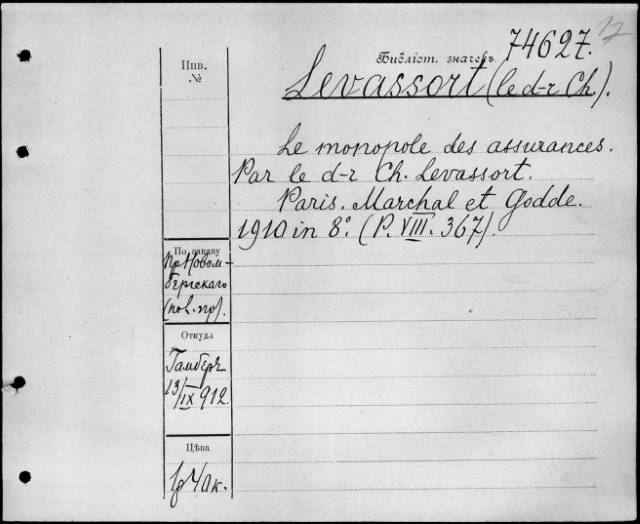 74627.
Библіот. значекъ
Levassort (le d-r Ch.).
Инв.
№
Le monopole des assurances.
Par le d-r Ch. Levassort.
Paris. Marchal et Godde.
1910 in 8º. (P. VIII. 367).
По заказу
Пр. Новом-
бергскаго
(пол. пр).
Откуда
Гамберъ
13/IX 912.
Цѣна
40к.